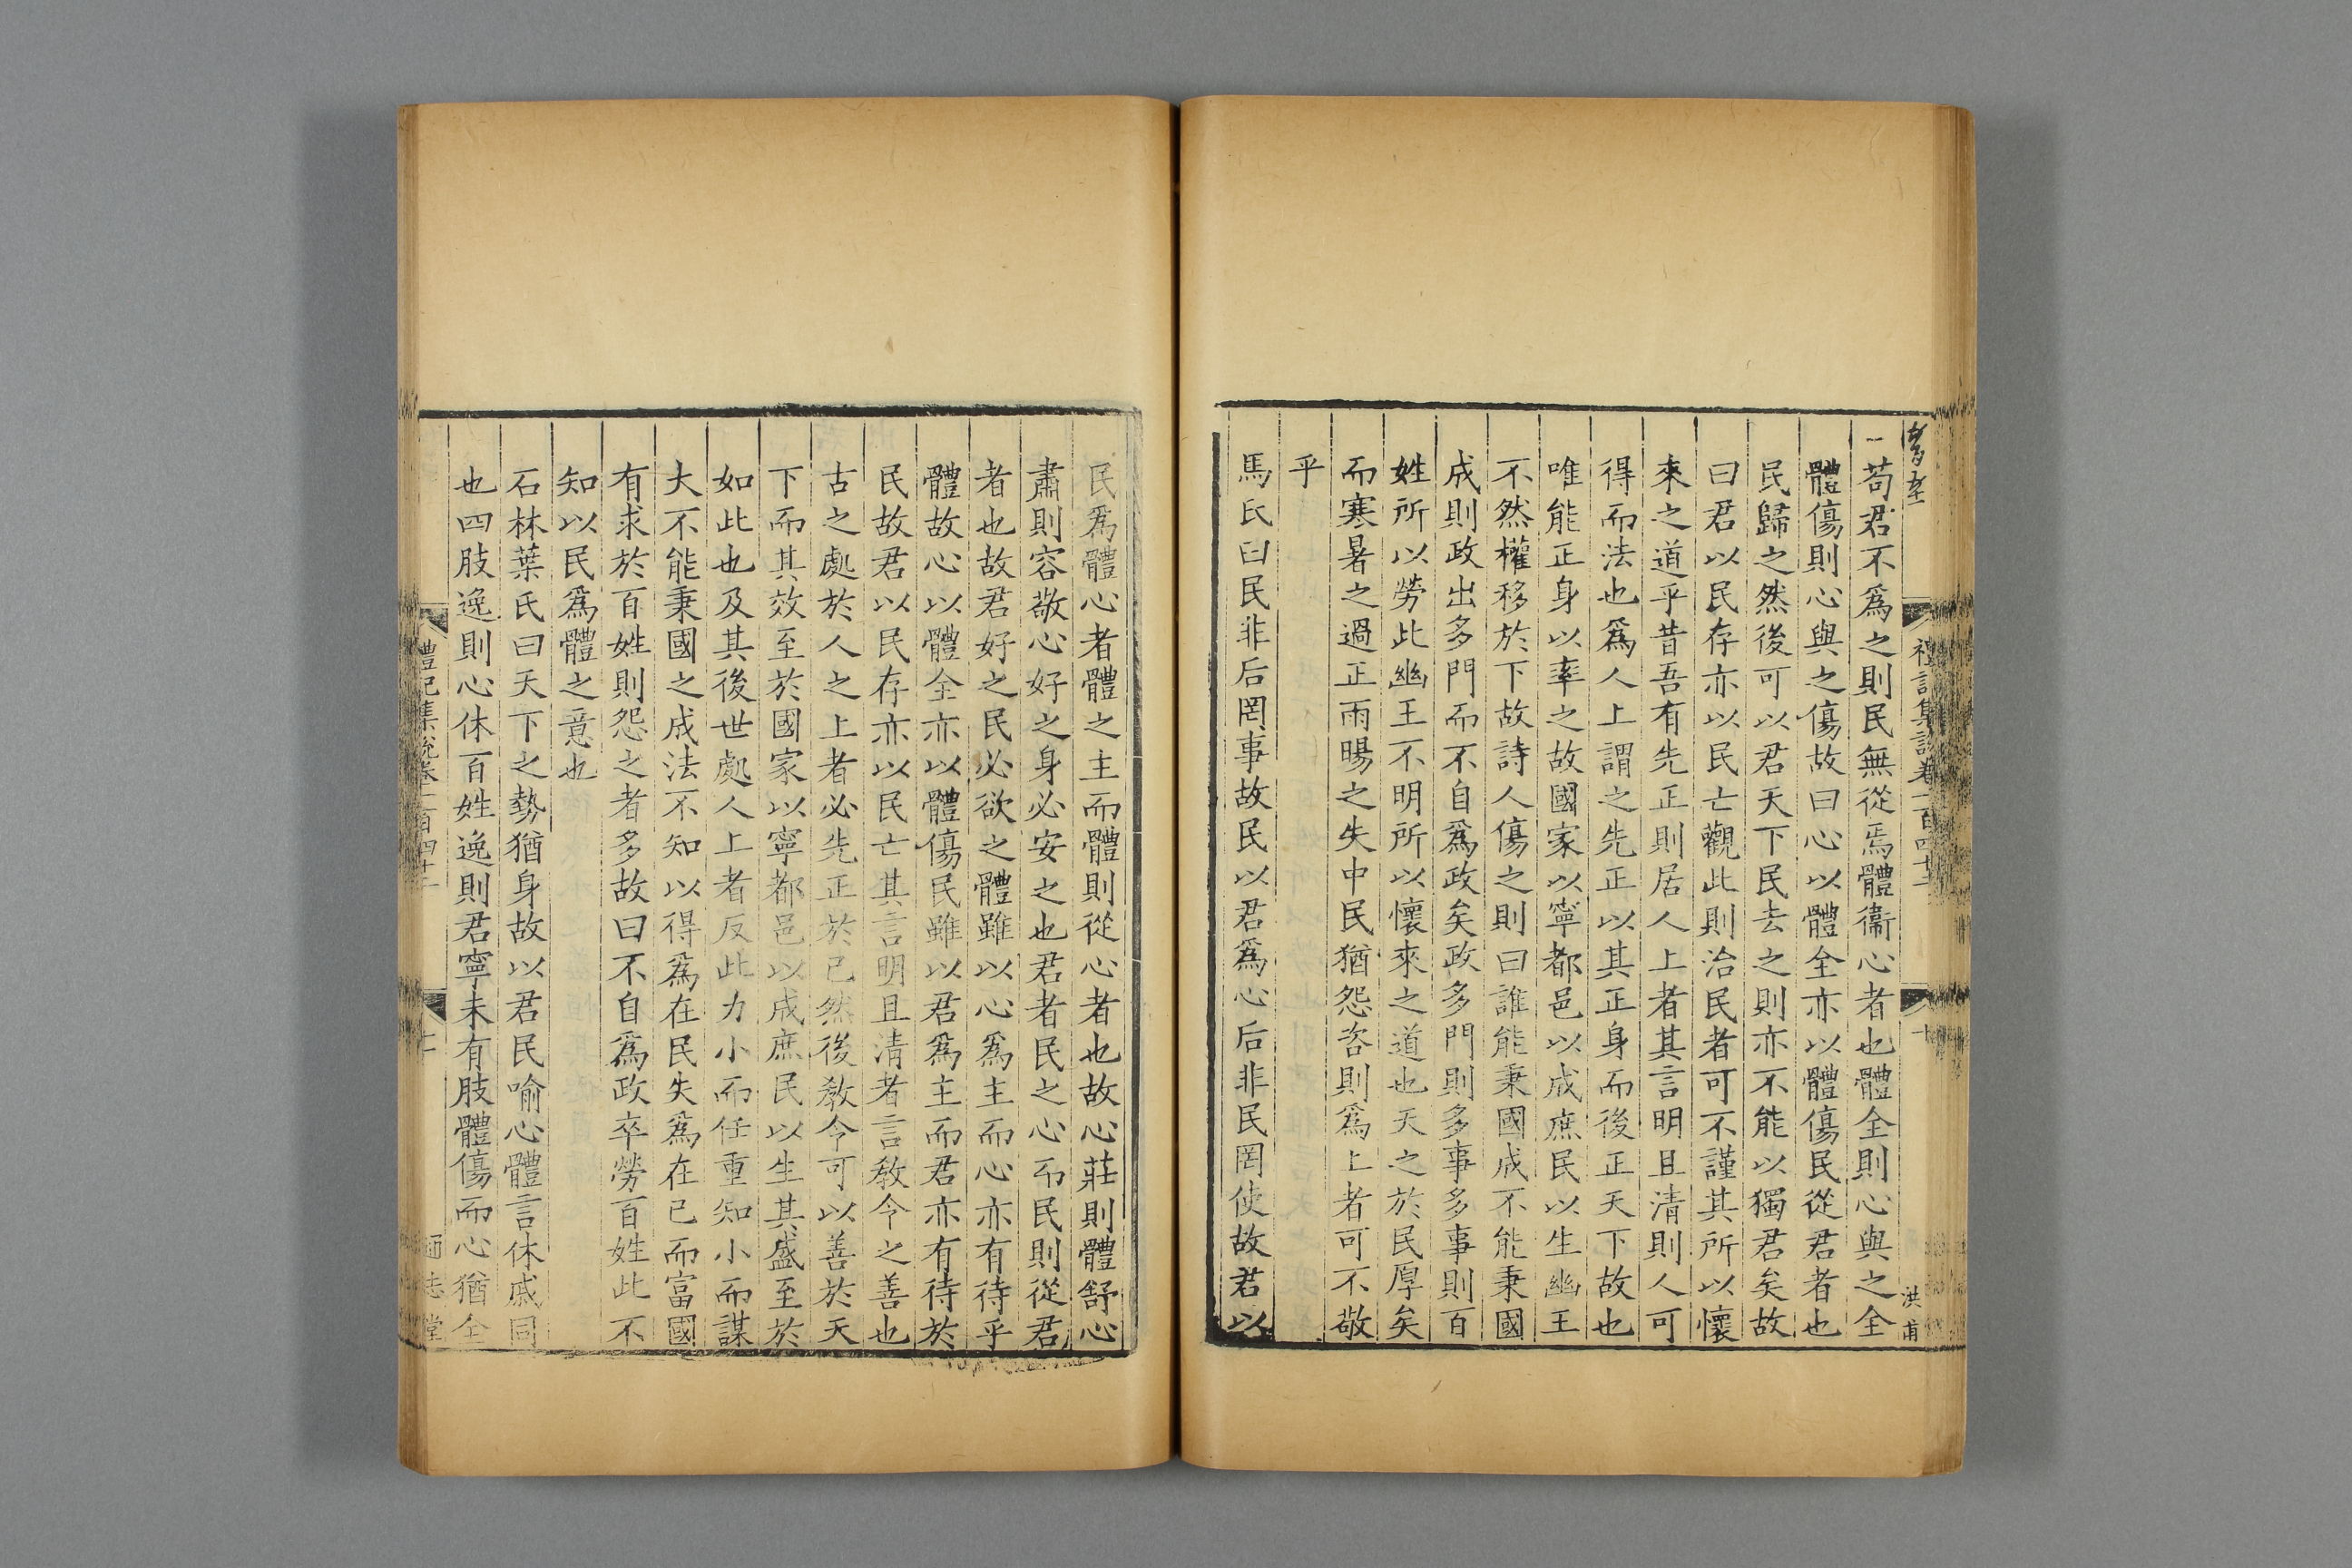 禮記集說卷一百四十一
十
洪甫
苟君不爲之則民無從焉體衞心者也體全則心與之全
體傷則心與之傷故曰心以體全亦以體傷民從君者也
民歸之然後可以君天下民去之則亦不能以獨君矣故
曰君以民存亦以民亡觀此則治民者可不謹其所以懷
來之道乎昔吾有先正則居人上者其言明且清則人可
得而法也爲人上謂之先正以其正身而後正天下故也
唯能正身以率之故國家以寧都邑以成庶民以生幽王
不然權移於下故詩人傷之則曰誰能秉國成不能秉國
成則政出多門而不自爲政矣政多門則多事多事則百
姓所以勞此幽王不明所以懷來之道也天之於民厚矣
而寒暑之過正雨暘之失中民猶怨咨則爲上者可不敬
乎
馬氏曰民非后罔事故民以君爲心后非民罔使故君以
民爲體心者體之主而體則從心者也故心莊則體舒心
肅則容敬心好之身必安之也君者民之心而民則從君
者也故君好之民必欲之體雖以心爲主而心亦有待乎
體故心以體全亦以體傷民雖以君爲主而君亦有待於
民故君以民存亦以民亡其言明且清者言敎令之善也
古之處於人之上者必先正於己然後敎令可以善於天
下而其效至於國家以寧都邑以成庶民以生其盛至於
如此也及其後世處人上者反此力小而任重知小而謀
大不能秉國之成法不知以得爲在民失爲在己而富國
有求於百姓則怨之者多故曰不自爲政卒勞百姓此不
知以民爲體之意也
石林葉氏曰天下之勢猶身故以君民喻心體言休戚同
也四肢逸則心休百姓逸則君寧未有肢體傷而心猶全
禮記集說卷一百四十一
通志堂